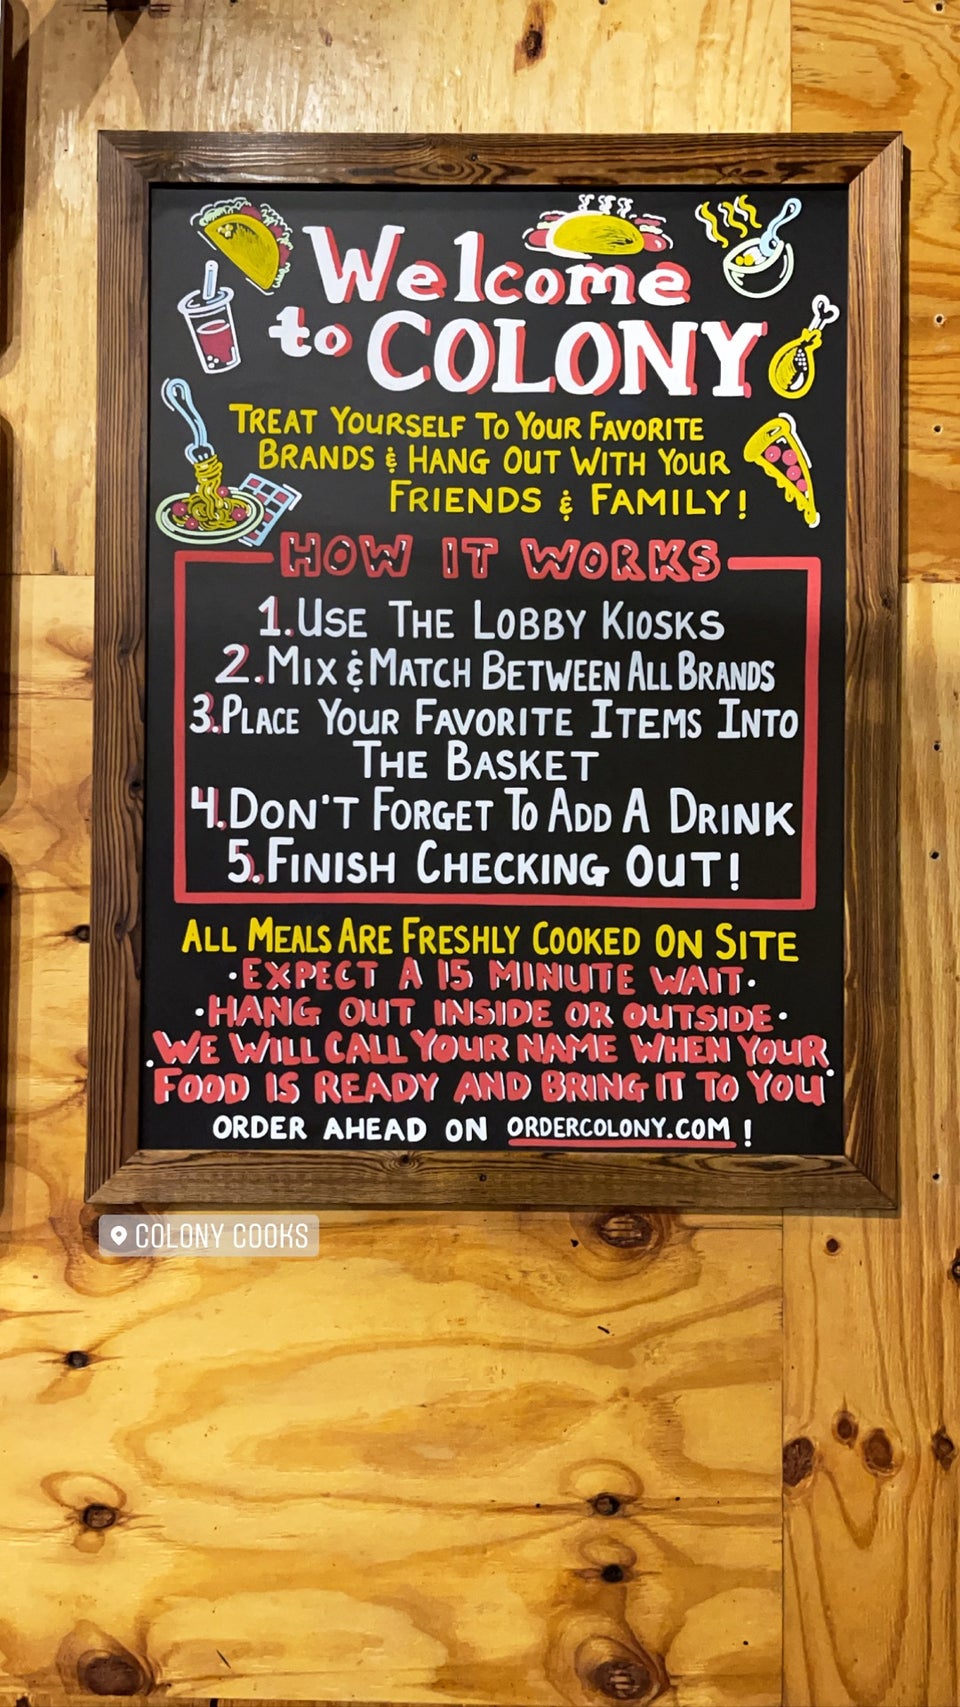 Welcome
to COLONY
TREAT YOURSELF TO YOUR FAVORITE
BRANDS & HANG OUT WITH YOUR
FRIENDS & FAMILY!
HOW IT WORKS
1. USE THE LOBBY KIOSKS
2. MIX & MATCH BETWEEN ALL BRANDS
3. PLACE YOUR FAVORITE ITEMS INTO
THE BASKET
4. DON'T FORGET TO ADD A DRINK
5. FINISH CHECKING OUT!
ALL MEALS ARE FRESHLY COOKED ON SITE
·EXPECT A 15 MINUTE WAIT·
·HANG OUT INSIDE OR OUTSIDE·
·WE WILL CALL YOUR NAME WHEN YOUR
FOOD IS READY AND BRING IT TO YOU·
ORDER AHEAD ON ORDERCOLONY.COM!
COLONY COOKS